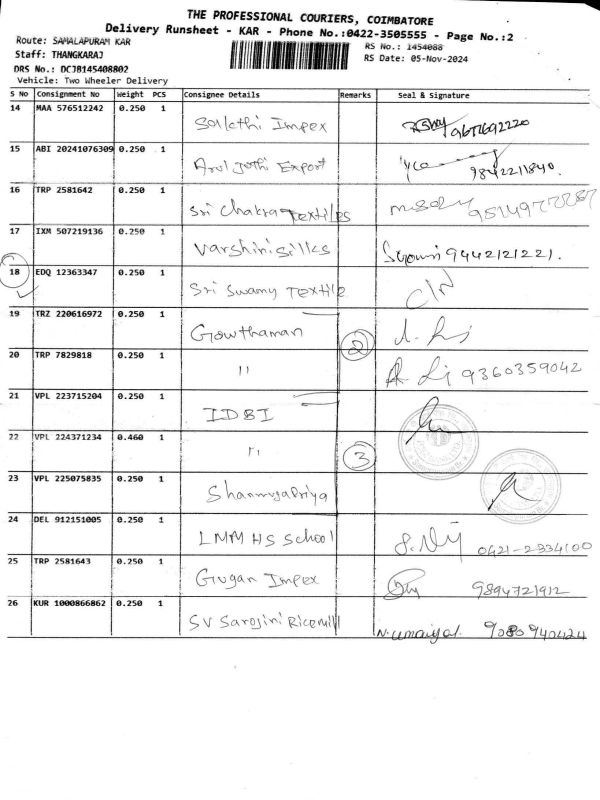 THE PROFESSIONAL COURIERS, COIMBATORE
Delivery Runsheet - KAR - Phone No.:0422-3505555 - Page No.:2
Route: SAMALAPURAM KAR
RS No.: 1454088
Staff: THANGKARAJ
RS Date: 05-Nov-2024
DRS No.: DCJB145408802
Vehicle: Two Wheeler Delivery
S No Consignment No Weight PCS Consignee Details Remarks Seal & Signature
14 MAA 576512242 0.250 1 Sakthi Impex
15 ABI 20241076309 0.250 1 Arul Jothi Export 9842211840.
16 TRP 2581642 0.250 1 Sri Chakra Textiles
17 IXM 507219136 0.250 1 Varshini Silks 9442121221.
18 EDQ 12363347 0.250 1 Sri Swamy Textile C/N
19 TRZ 220616972 0.250 1 Gowthaman 2
20 TRP 7829818 0.250 1 11 9360359042
21 VPL 223715204 0.250 1 IDBI
22 VPL 224371234 0.460 1 11 3
23 VPL 225075835 0.250 1 Shanmugapriya
24 DEL 912151005 0.250 1 LMM HS School 0421-2334100
25 TRP 2581643 0.250 1 Gugan Impex 9894721912
26 KUR 1000866862 0.250 1 SV Sarojini Ricemill N. Umaiyal. 9080940424